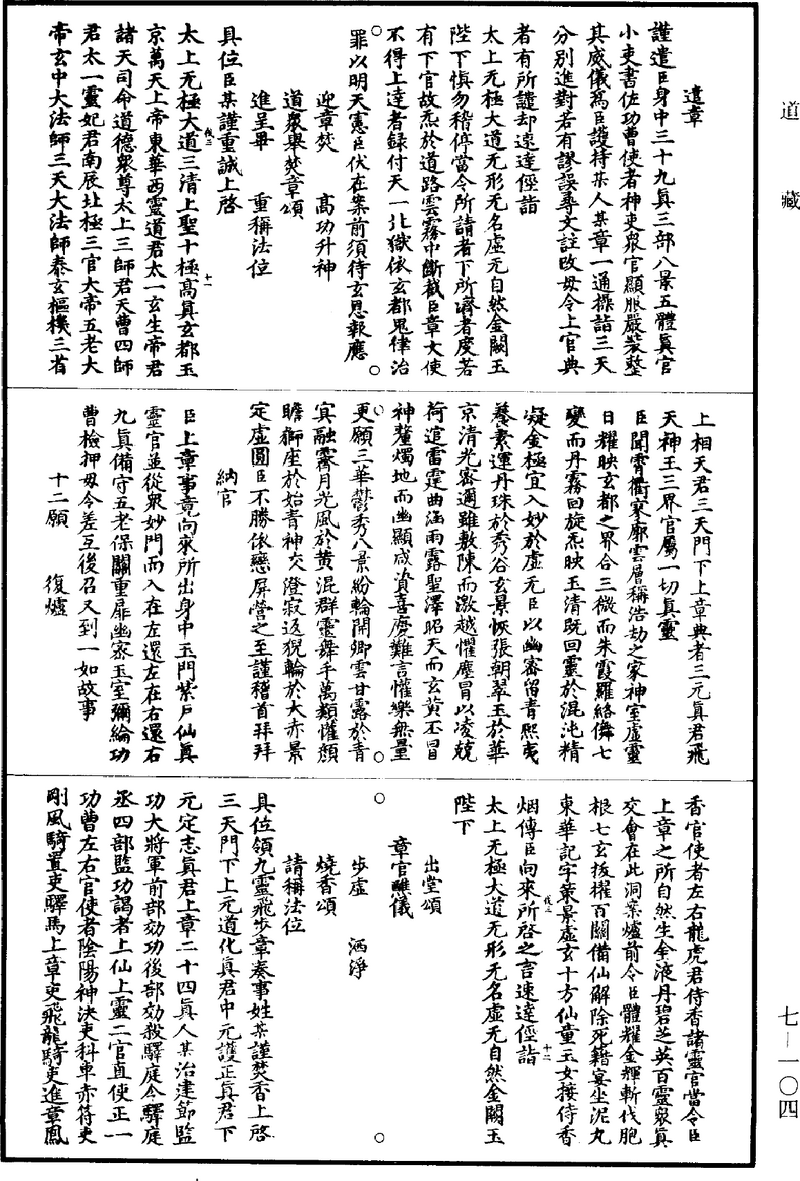 道藏
七—一〇四
遣章
謹遣臣身中三十九眞三部八景五體眞官
小吏書佐功曹使者神吏衆官顯服嚴裝整
其威儀爲臣護持某人某章一通操詣三天
分别進對若有謬誤尋文註改毋令上官典
者有所譴却速達徑詣
太上无極大道无形无名虛无自然金闕玉
陛下愼勿稽停當令所請者下所濟者度若
有下官故炁於道路雲霧中斷截臣章大使
不得上達者録付天一北獄依玄都鬼律治
罪以明天憲臣伏在案前須待玄恩報應
迎章焚 高功升神
道衆舉焚章頌
進呈畢 重稱法位
具位臣某謹重誠上啓
太上无極大道三清上聖十極高眞玄都玉
京萬天上帝東華西靈道君太一玄生帝君
諸天司命道德衆尊太上三師君天曹四師
君太一靈妃君南辰北極三官大帝五老大
帝玄中大法師三天大法師泰玄樞機三省
上相天君三天門下上章典者三元眞君飛
天神王三界官屬一切眞靈
臣聞霄衢寥廓雲層稱浩劫之家神室虛靈
日耀映玄都之界合三微而朱霞羅絡儕七
變而丹霧回旋炁映玉清既回靈於混沌精
凝金極宜入妙於虛无臣以幽密留青熙夷
養素運丹珠於秀谷玄景恢張朝翠玉於華
京清光密邇雖敷陳而激越懼塵冒以凌兢
荷逭雷霆曲涵雨露聖澤昭天而玄黃丕冒
神釐燭地而幽顯咸資喜慶難言懽樂無量
更願三華鬱秀八景紛輪開卿雲甘露於青
冥融霽月光風於黄混群靈舞手萬類懽顔
瞻獅座於始青神交澄寂返猊輪於大赤景
定虛圓臣不勝依戀屏營之至謹稽首拜拜
納官
臣上章事竟向來所出身中玉門紫戶仙眞
靈官並從衆妙門而入在左還左在右還右
九眞備守五老保關重扉幽密玉室彌綸功
曹檢押毋令差互後召又到一如故事
十二願 復爐
香官使者左右龍虎君侍香諸靈官當令臣
上章之所自然生金液丹碧芝英百靈衆眞
交會在此洞案爐前令臣體耀金輝斬伐胞
根七玄拔擢百關備仙解除死籍宴坐泥丸
東華記字策景虛玄十方仙童玉女接侍香
烟傳臣向來所啓之言速達徑詣
太上无極大道无形无名虛无自然金闕玉
陛下
出堂頌
章官醮儀
步虛 洒淨
燒香頌
請稱法位
具位領九靈飛步章奏事姓某謹焚香上啓
三天門下上元道化眞君中元護正眞君下
元定志眞君上章二十四眞人某治建節監
功大將軍前部効功後部効殺驛庭令驛庭
丞四部監功謁者上仙上靈二官直使正一
功曹左右官使者陰陽神決吏科車赤符吏
剛風騎置吏驛馬上章吏飛龍騎吏進章鳳